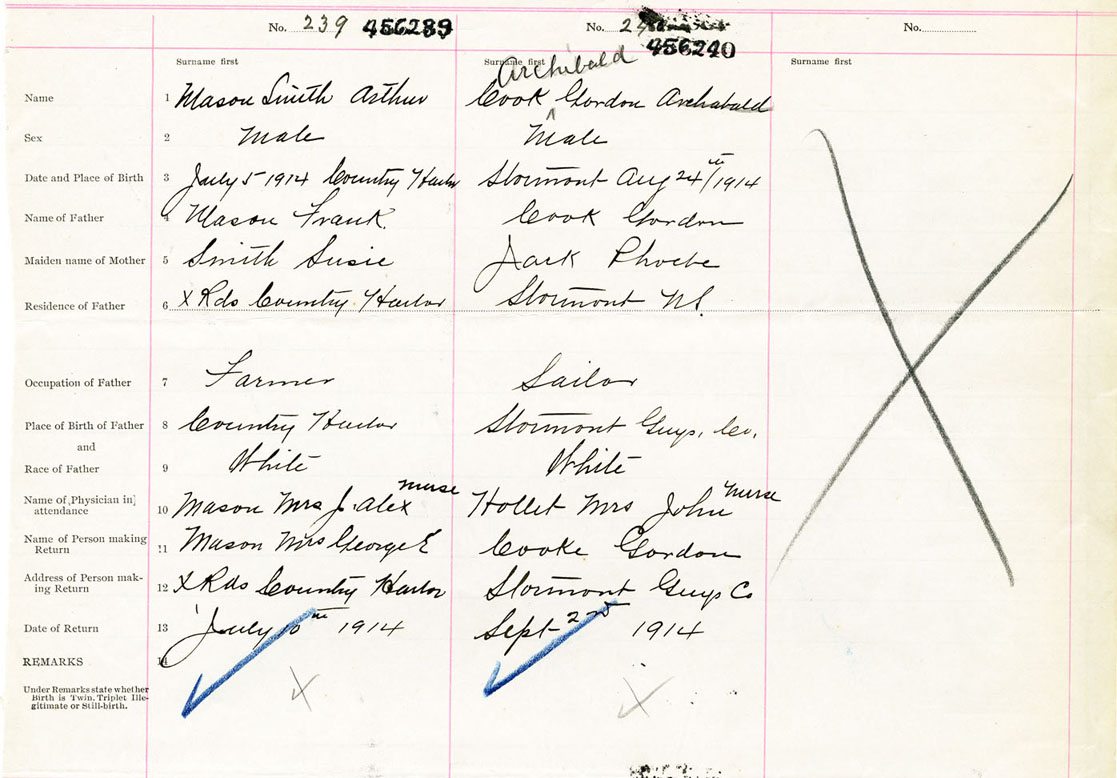 No. 239 456289 No. 24 456240 No.
Surname first Surname first Surname first
Archibald
Name 1 Mason Smith Arthur Cook ^ Gordon Archabald
Sex 2 Male Male
Date and Place of Birth 3 July 5 1914 Country Harbor Stormont Aug 24th/1914
Name of Father 4 Mason Frank. Cook Gordon
Maiden name of Mother 5 Smith Susie Jack Phoebe
Residence of Father 6 X Rds Country Harbor Stormont N.S.
Occupation of Father 7 Farmer Sailor
Place of Birth of Father 8 Country Harbor Stormont Guys. Co.
and
Race of Father 9 White White
Name of Physician in attendance 10 Mason Mrs J. Alex nurse Hollet Mrs John nurse
Name of Person making Return 11 Mason Mrs George E Cooke Gordon
Address of Person mak-ing Return 12 X Rds Country Harbor Stormont Guys Co
Date of Return 13 July 10th 1914 Sept 2nd 1914
REMARKS 14
Under Remarks state whether
Birth is Twin, Triplet Ille-
gitimate or Still-birth.